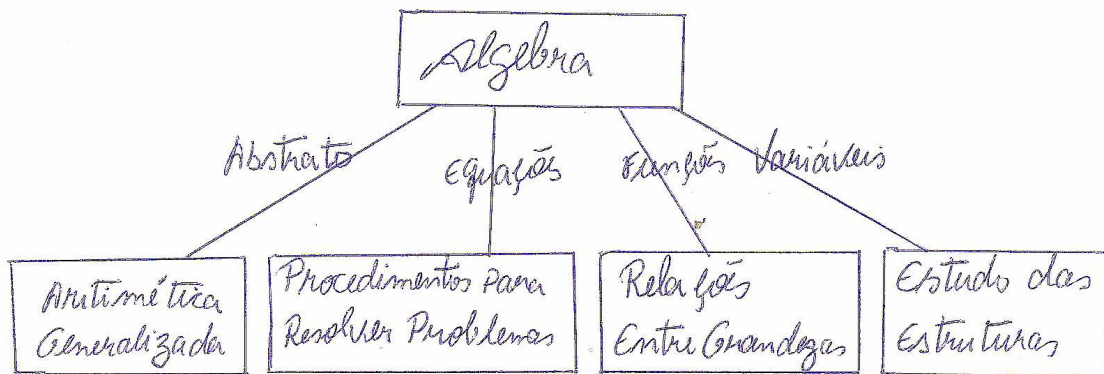 Algebra
Abstrato
Equações
Funções
Variáveis
Aritimética
Generalizada
Procedimentos para
Resolver Problemas
Relações
Entre Grandezas
Estudo das
Estruturas